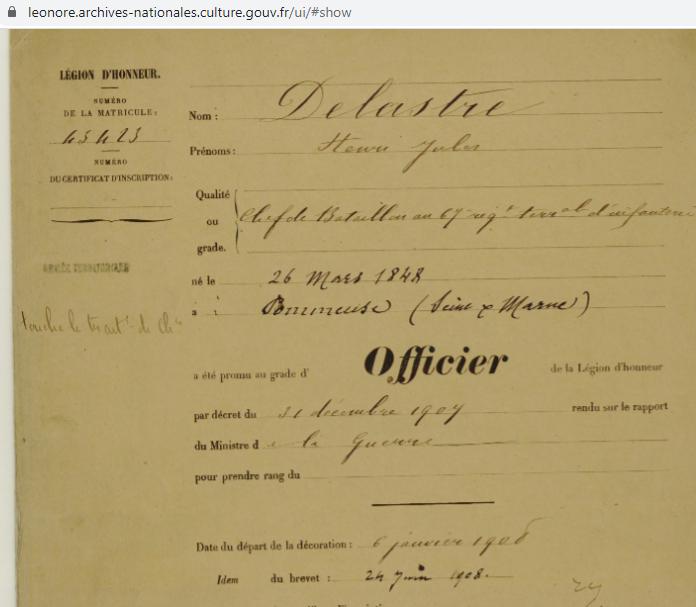 leonore.archives-nationales.culture.gouv.fr/ui/#show
LÉGION D'HONNEUR.
NUMÉRO
DE LA MATRICULE:
45423
NUMÉRO
DU CERTIFICAT D'INSCRIPTION:
ARMÉE TERRITORIALE
touche le trait.t de Ch.er
Nom: Delastre
Prénoms: Henri Jules
Qualité
ou Chef de Bataillon au 67e regt terral d'infanterie
grade.
né le 26 Mars 1848
à : Pommeuse (Seine & Marne)
a été promu au grade d' Officier de la Légion d'honneur
par décret du 31 décembre 1907 rendu sur le rapport
du Ministre de la Guerre
pour prendre rang du
Date du départ de la décoration: 6 janvier 1908
Idem du brevet: 24 Juin 1908